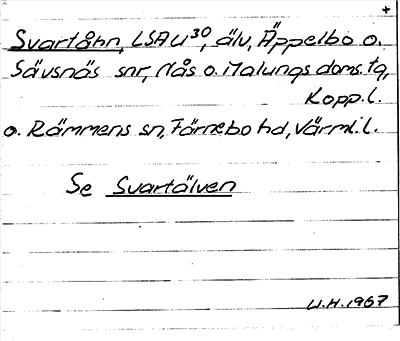 +
Svartåhn, LSA U³⁰, älv, Äppelbo o.
Sävsnäs snr, Nås o. Malungs doms. tg,
Kopp. l.
o. Rämmens sn, Färnebo hd, Värml. l.
Se Svartälven
U.H. 1967